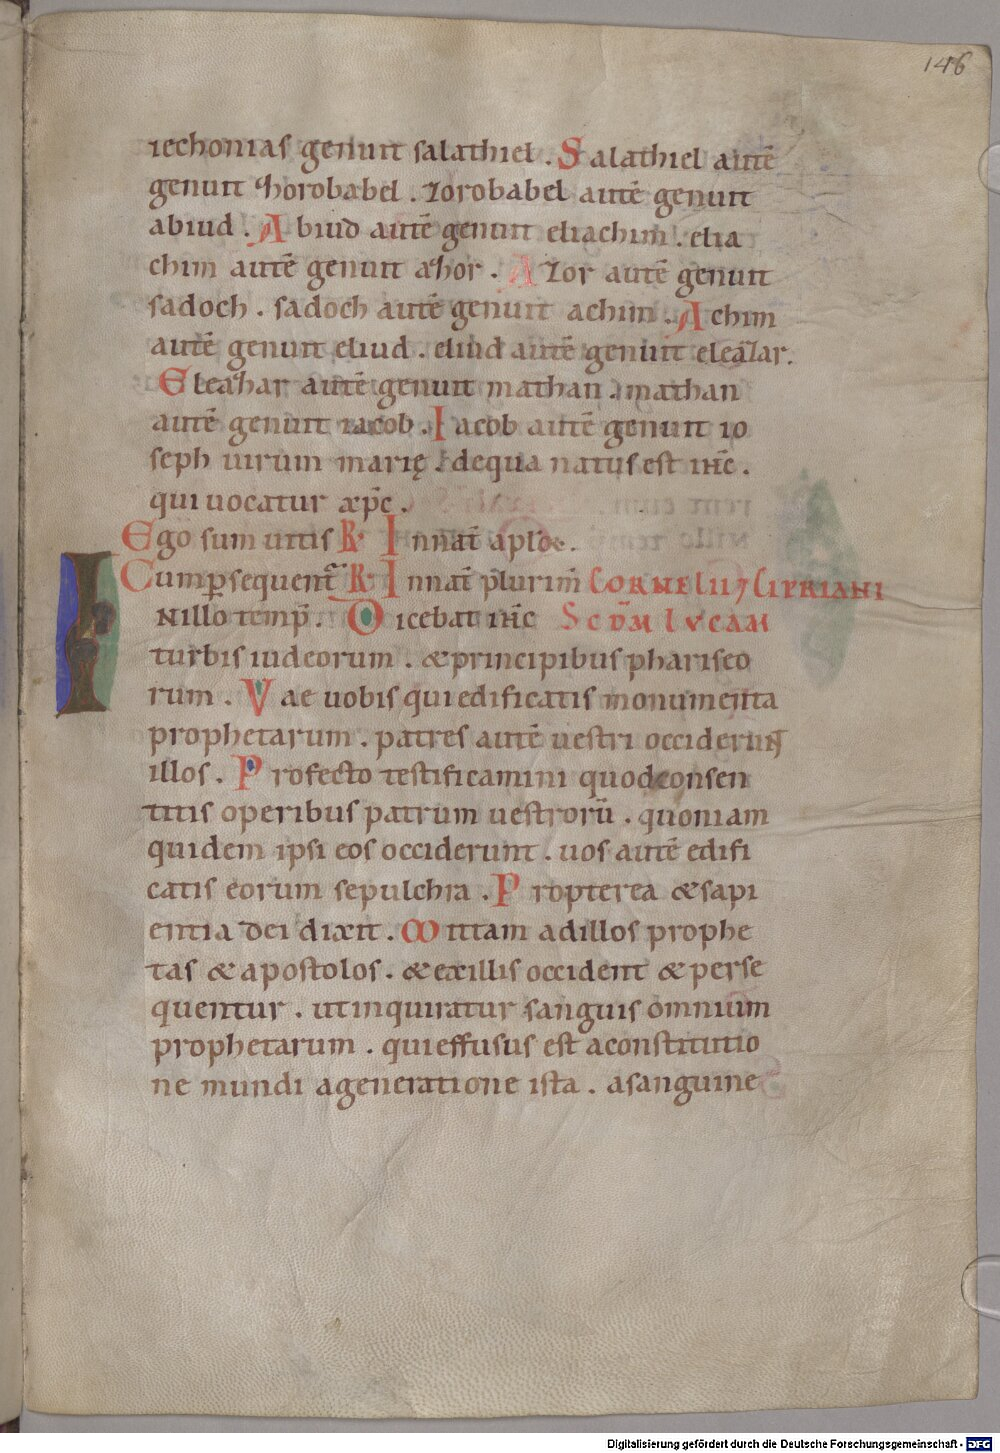 146
iechonias genuit salathiel. Salathiel autē
genuit zorobabel. Zorobabel autē genuit
abiud. Abiud autē genuit eliachim. elia
chim autē genuit azor. Azor autē genuit
sadoch. sadoch autē genuit achim. Achim
autē genuit eliud. eliud autē genuit eleazar.
Eleazar autē genuit mathan. mathan
autē genuit iacob. Iacob autē genuit io
seph uirum marię. dequa natus est ihc̄.
qui uocatur xp̄c.
Ego sum uitis R In nat̄
Cum persequent R In nat̄ plurim̄ CORNELII & CIPRIANI
INillo temp̄. Dicebat ihc̄ SCD̄M LVCAM
turbis iudeorum. & principibus phariseo
rum. Vae uobis qui edificatis monumenta
prophetarum. patres autē uestri occiderunt
illos. Profecto testificamini quod consen
titis operibus patrum uestrorū. quoniam
quidem ipsi eos occiderunt. uos autē edifi
catis eorum sepulchra. Propterea & sapi
entia dei dixit. Mittam adillos prophe
tas & apostolos. & exillis occident & perse
quentur. ut inquiratur sanguis omnium
prophetarum. qui effusus est aconstitutio
ne mundi ageneratione ista. asanguine
Digitalisierung gefördert durch die Deutsche Forschungsgemeinschaft - DFG